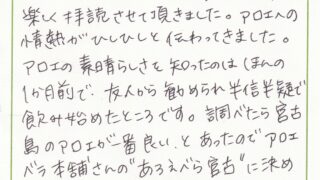 楽しく拝読させて頂きました。アロエへの
情熱がひしひしと伝わってきました。
アロエの素晴らしさを知ったのはほんの
1か月前で、友人から勧められ半信半疑で
飲み始めたところです。調べたら宮古
島のアロエが一番良い、とあったのでアロエ
ベラ本舗さんの"あろえべら宮古"に決め